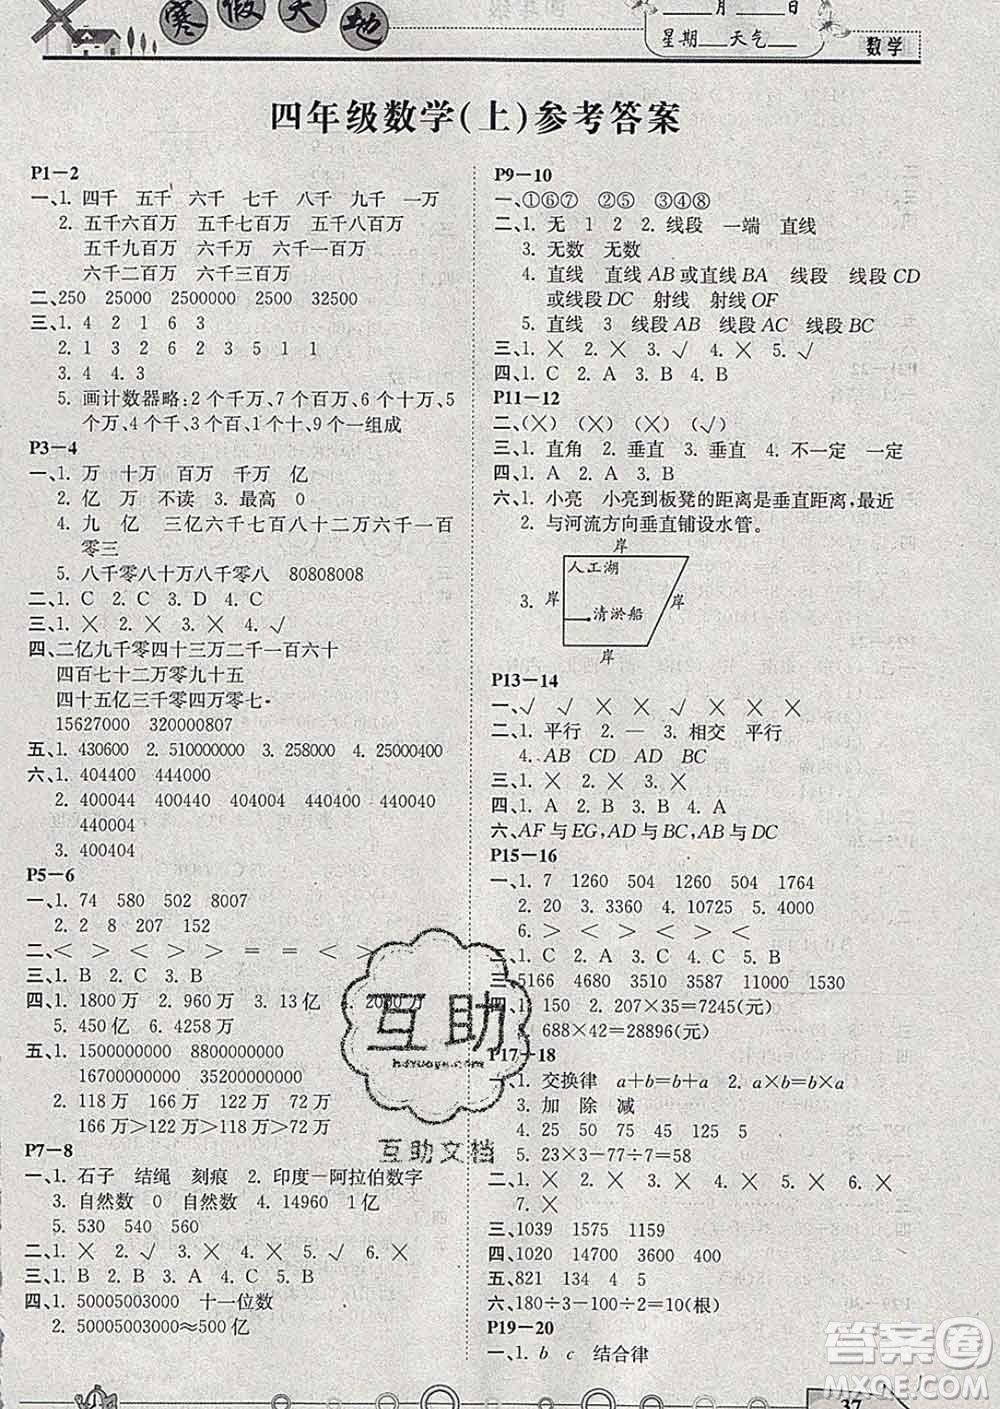 寒假天地
月 日
星期 天气
数学
四年级数学(上)参考答案
P1—2
一、1. 四千 五千 六千 七千 八千 九千 一万
2. 五千六百万 五千七百万 五千八百万
五千九百万 六千万 六千一百万
六千二百万 六千三百万
二、250 25000 2500000 2500 32500
三、1. 4 2 1 6 3
2. 1 3 2 1 6 2 2 1 3 1
3. 4 4. 3
5. 画计数器略;2个千万、7个百万、10个十万、5
个万、4个千、3个百、1个十、9个一组成
P3—4
一、1. 万 十万 百万 千万 亿
2. 亿 万 不读 3. 最高 0
4. 九 亿 三亿六千七百八十二万六千一百
零三
5. 八千零八十万八千零八 80808008
二、1. C 2. C 3. D 4. C
三、1. × 2. × 3. × 4. √
四、二亿九千零四十三万二千一百六十
四百七十二万零九百五十五
四十五亿三千零四万零七
15627000 320000807
五、1. 430600 2. 510000000 3. 258000 4. 25000400
六、1. 404400 444000
2. 400044 400440 404004 404040 400404
440004
3. 400404
P5—6
一、1. 74 580 502 8002
2. 2 8 207 152
二、< > < > > = = < > <
三、1. B 2. C 3. B 4. A
四、1. 1800万 2. 960万 3. 13亿 4. 2000万
5. 450亿 6. 4258万
五、1. 1500000000 8800000000
16700000000 35200000000
2. 118万 166万 112万 127万
166万>127万>118万>112万
P7—8
一、1. 石子 结绳 刻痕 2. 印度—阿拉伯数字
3. 自然数 0 自然数 4. 14960 1亿
5. 530 540 560
二、1. × 2. √ 3. × 4. × 5. √ 6. ×
三、1. B 2. B 3. A 4. B 5. A
四、1. 50005003000 十一位数
2. 50005003000≈500亿
P9—10
一、①⑥⑦ ②⑤ ③④⑧
二、1. 无 1 2 2. 线段 一端 直线
3. 无数 无数
4. 直线 直线AB或直线BA 线段 线段CD
或线段DC 射线 射线OF
5. 直线 3 线段AB 线段AC 线段BC
三、1. × 2. × 3. √ 4. × 5. ×
四、1. C 2. A 3. B 4. B
P11—12
二、(×) (×) (√)
三、1. 直角 2. 垂直 3. 垂直 4. 不一定 一定
四、1. A 2. A 3. A 4. B
六、1. 小亮 小亮到板凳的距离是垂直距离,最近
2. 与河流方向垂直铺设水管。
岸
人工湖
3. 岸 清淤船 岸
岸
P13—14
一、√ √ × × √ × × ×
二、1. 平行 2. — 3. 相交 平行
4. AB CD AD BC
三、1. × 2. × 3. ×
四、1. A 2. B 3. B 4. A
六、AF与EG,AD与BC,AB与DC
P15—16
一、1. 7 1260 504 1260 504 1764
2. 20 3. 3360 4. 10725 5. 4000
6. > < > < > >
二、1. C 2. A 3. A 4. C 5. B
三、5166 4680 3510 9000 11000 1530
四、1. 150 2. 207×35=7245(元)
688×42=28896(元)
P17—18
一、1. 交换律 a+b=b+a 2. a×b=b×a
3. 加 除 减
4. 25 50 125 75
5. 23×3-77÷7=58
二、1. × 2. × 3. × 4. × 5. × 6. ×
7. ×
三、1039 1575 1159
四、1020 14700 3600 400
五、821 134 4 5
六、180÷3-150÷3=10(根)
P19—20
一、1. b c 结合律
37
互助
hdzuoye.com
互助文档
答案圈
MXQE.COM